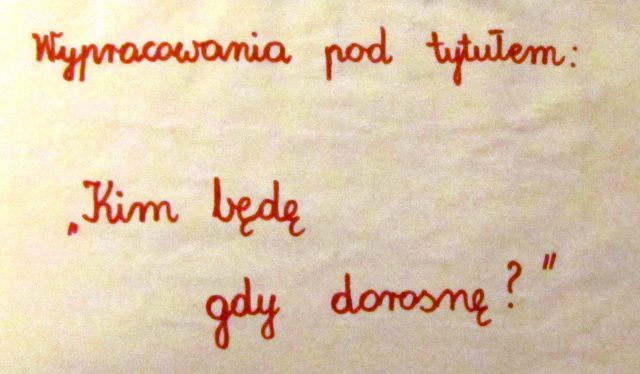 Wypracowania pod tytułem:
„Kim będę
gdy dorosnę?"